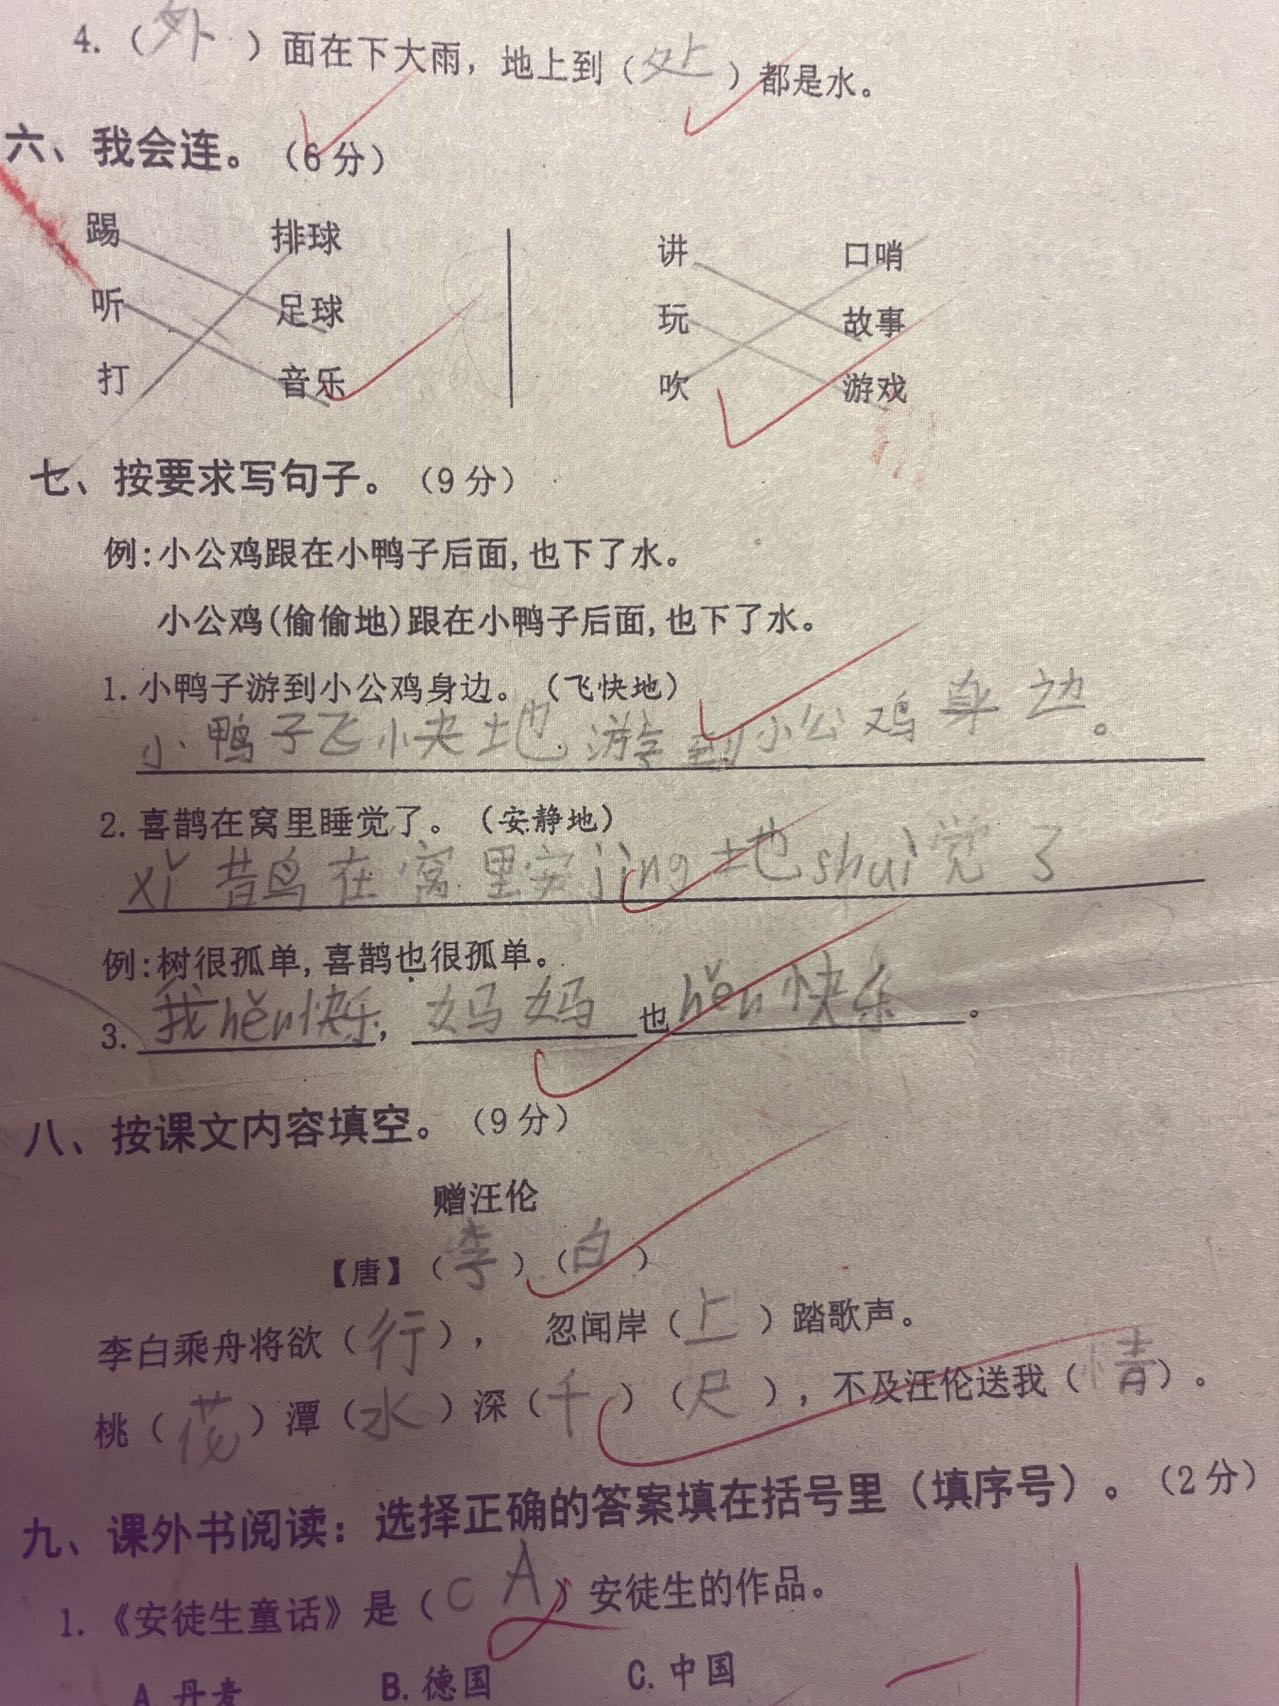 4.（外）面在下大雨，地上到（处）都是水。
六、我会连。（6分）
踢 排球 讲 口哨
听 足球 玩 故事
打 音乐 吹 游戏
七、按要求写句子。（9分）
例:小公鸡跟在小鸭子后面,也下了水。
小公鸡(偷偷地)跟在小鸭子后面,也下了水。
1.小鸭子游到小公鸡身边。（飞快地）
小鸭子飞快地游到小公鸡身边。
2.喜鹊在窝里睡觉了。（安静地）
xǐ鹊在窝里安jìng地shuì觉了
例:树很孤单,喜鹊也很孤单。
3.我hěn快乐，妈妈也hěn快乐。
八、按课文内容填空。（9分）
赠汪伦
【唐】（李）（白）
李白乘舟将欲（行），忽闻岸（上）踏歌声。
桃（花）潭（水）深（千）（尺），不及汪伦送我（情）。
九、课外书阅读：选择正确的答案填在括号里（填序号）。（2分）
1.《安徒生童话》是（C A）安徒生的作品。
A.丹麦 B.德国 C.中国